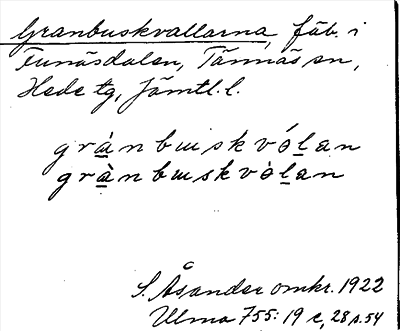 Granbuskvallarna, fäb. i
Funäsdalen, Tännäs sn,
Hede tg, Jämtl. l.
grànbuskvólan
grànbuskvòlan
S. Åsander omkr. 1922
Ulma 755:19 c, 28 p. 54